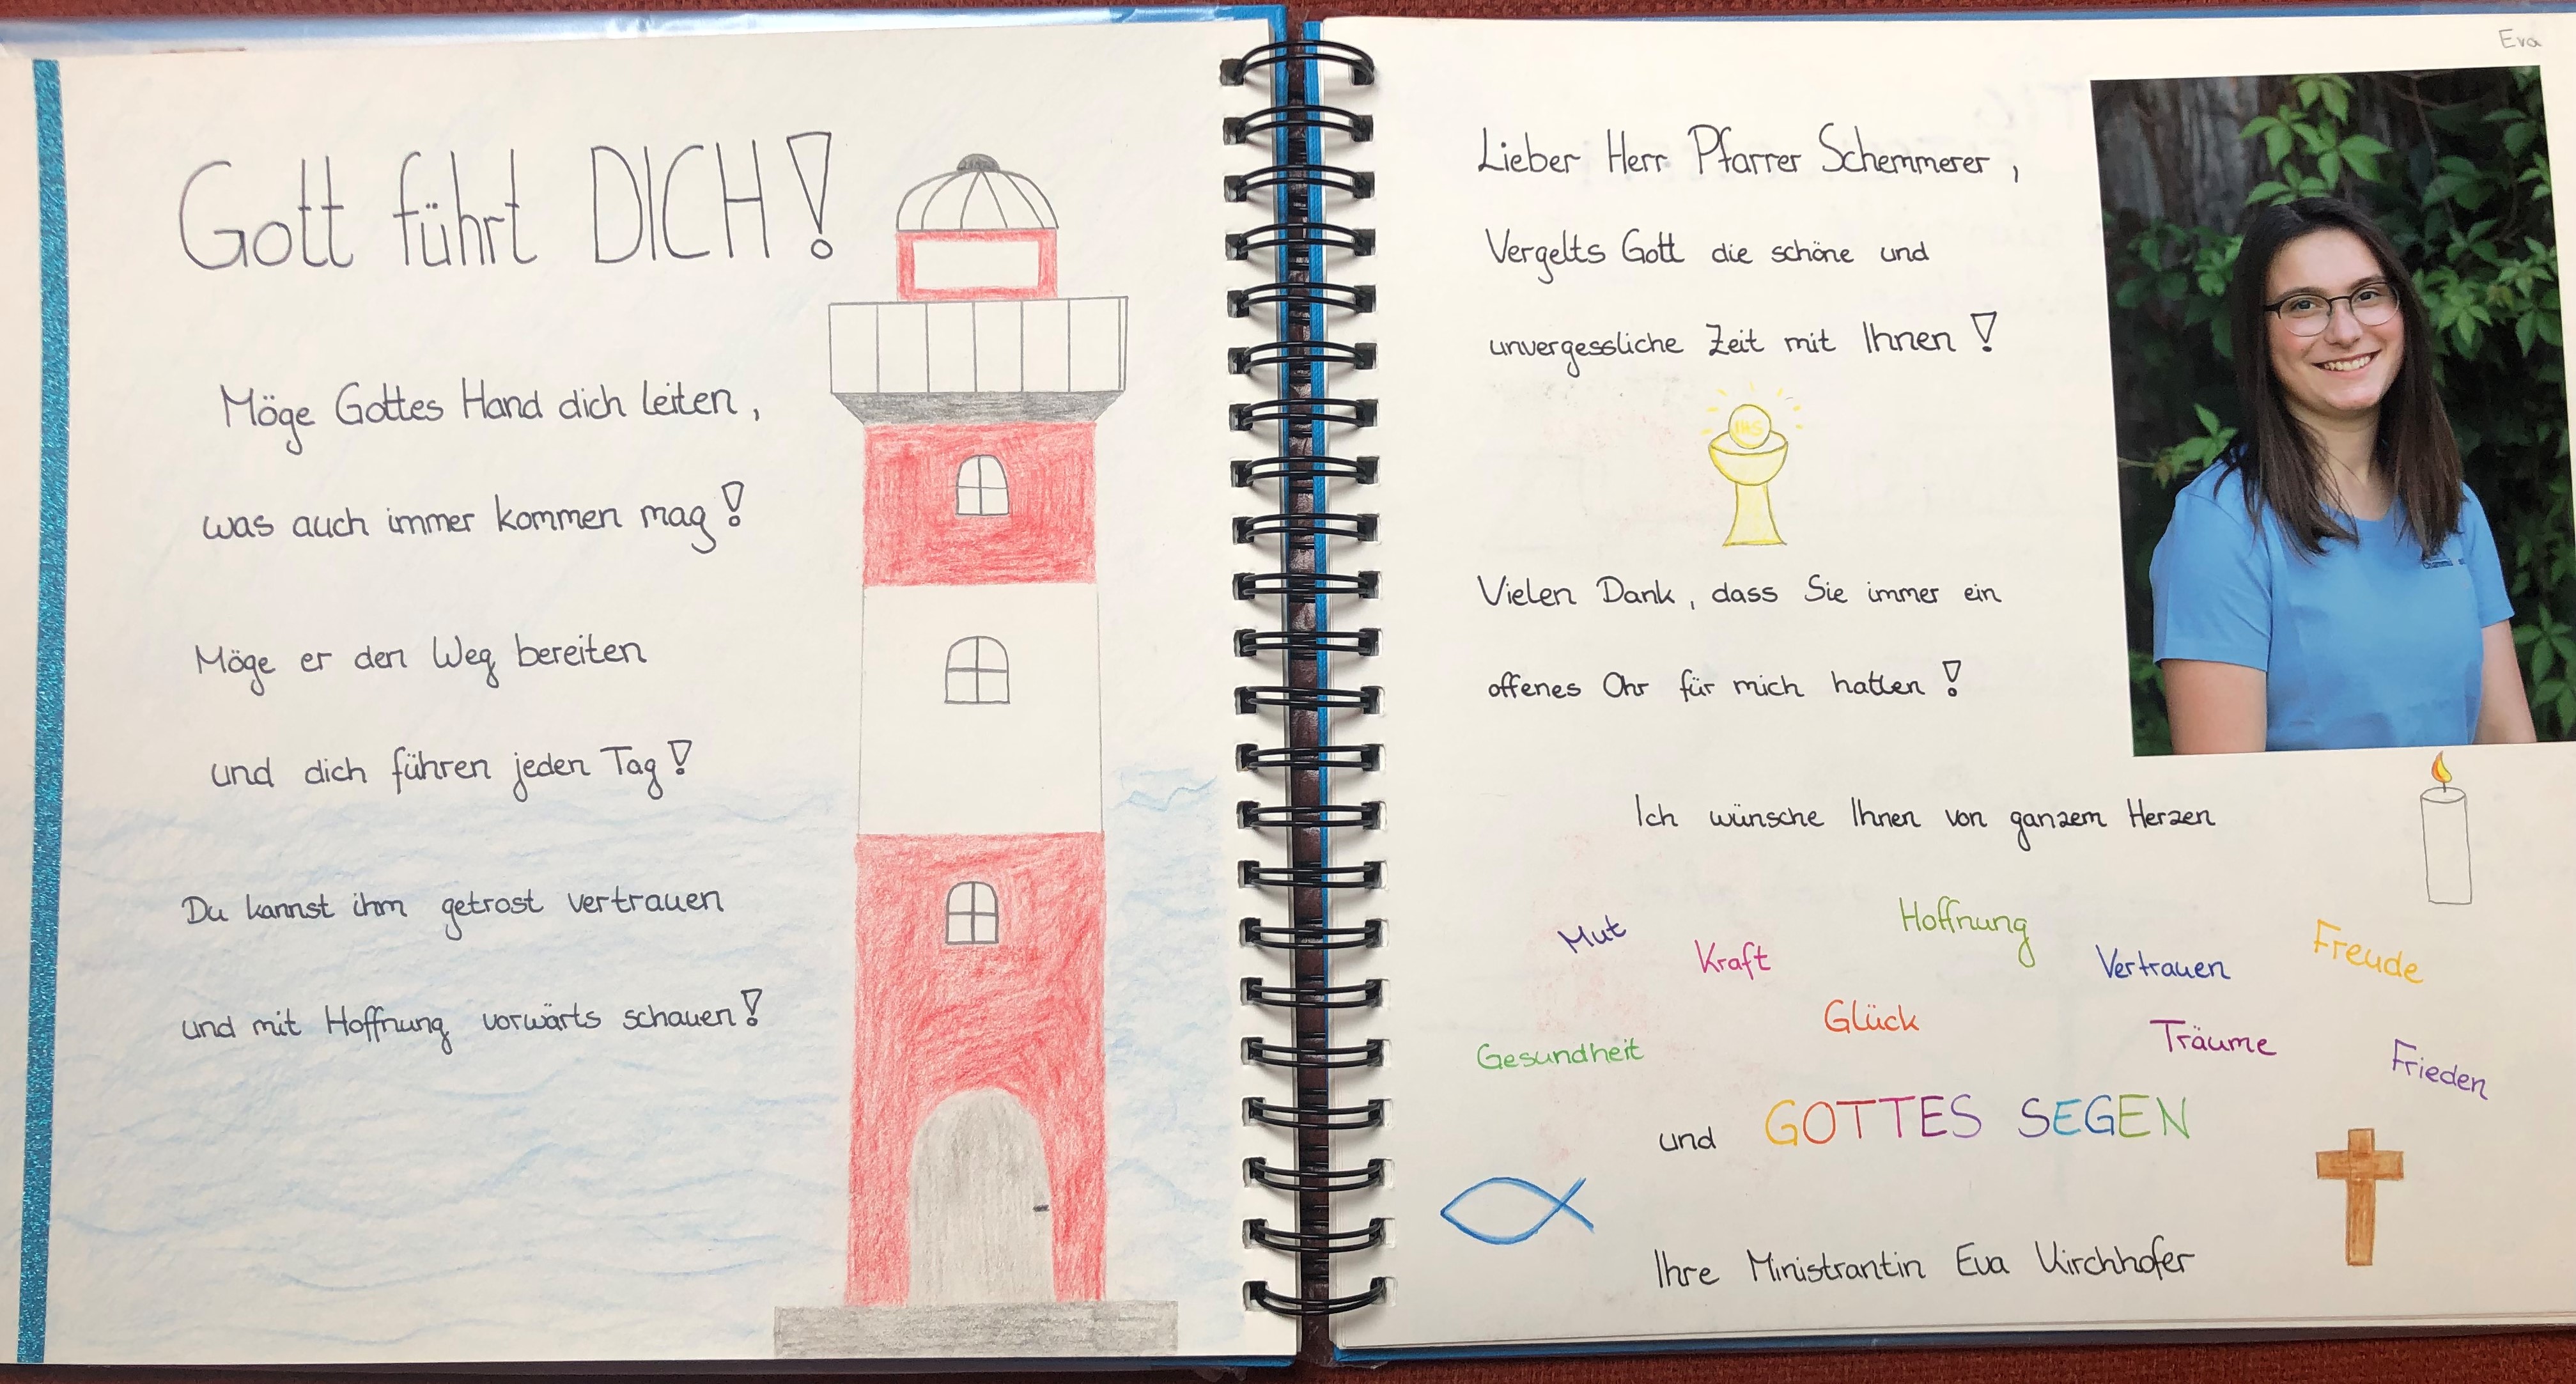 Gott führt DICH!
Möge Gottes Hand dich leiten,
was auch immer kommen mag!
Möge er den Weg bereiten
und dich führen jeden Tag!
Du kannst ihm getrost vertrauen
und mit Hoffnung vorwärts schauen!
Eva
Lieber Herr Pfarrer Schemmerer,
Vergelts Gott die schöne und
unvergessliche Zeit mit Ihnen!
IHS
Vielen Dank, dass Sie immer ein
offenes Ohr für mich hatten!
Ich wünsche Ihnen von ganzem Herzen
Mut Kraft Hoffnung Vertrauen Freude
Gesundheit Glück Träume Frieden
und GOTTES SEGEN
Ihre Ministrantin Eva Kirchhofer